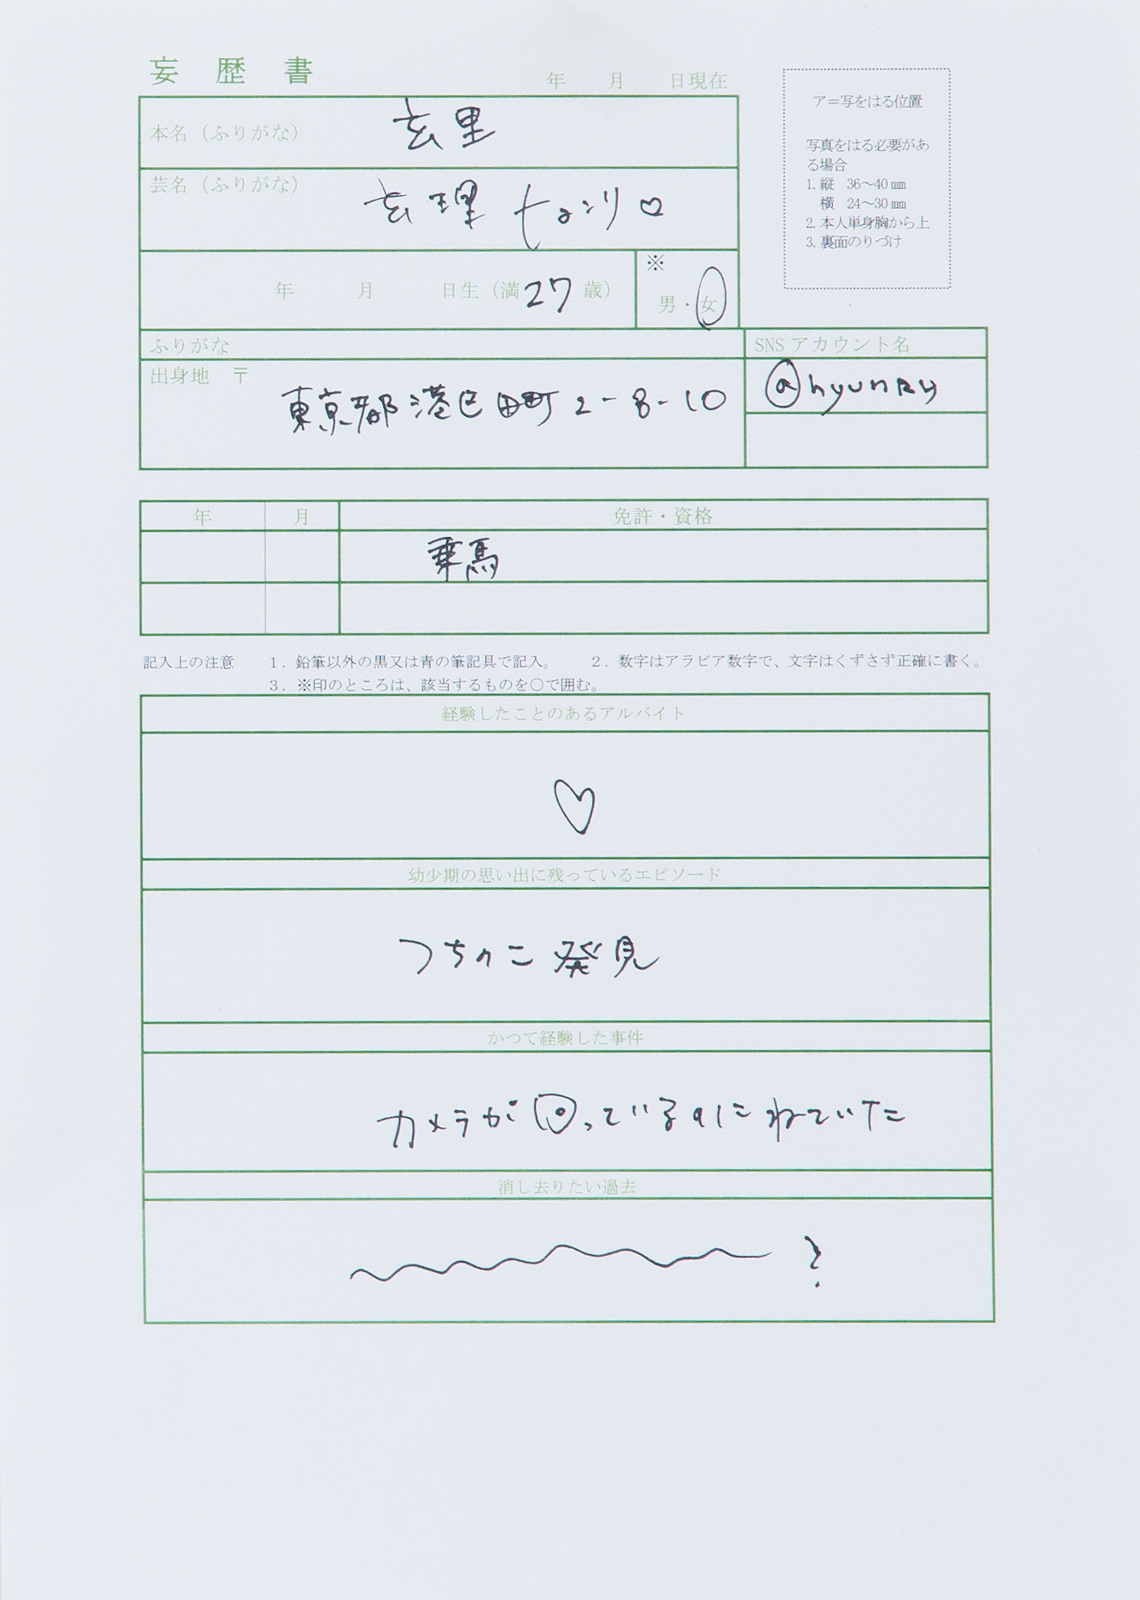 妄歴書
年 月 日現在
ア=写をはる位置
写真をはる必要があ
る場合
1. 縦 36〜40 mm
横 24〜30 mm
2. 本人単身胸から上
3. 裏面のりづけ
本名（ふりがな） 玄里
芸名（ふりがな） 玄理 ヒョンリ♡
年 月 日生（満27歳） ※ 男・女
ふりがな
出身地 〒
東京都港区田町2-8-10
SNS アカウント名
@hyunRy
年 月 免許・資格
乗馬
記入上の注意 1．鉛筆以外の黒又は青の筆記具で記入。 2．数字はアラビア数字で、文字はくずさず正確に書く。
3．※印のところは、該当するものを○で囲む。
経験したことのあるアルバイト
♡
幼少期の思い出に残っているエピソード
つちのこ発見
かつて経験した事件
カメラが回っているのにねていた
消し去りたい過去
〜〜〜〜?